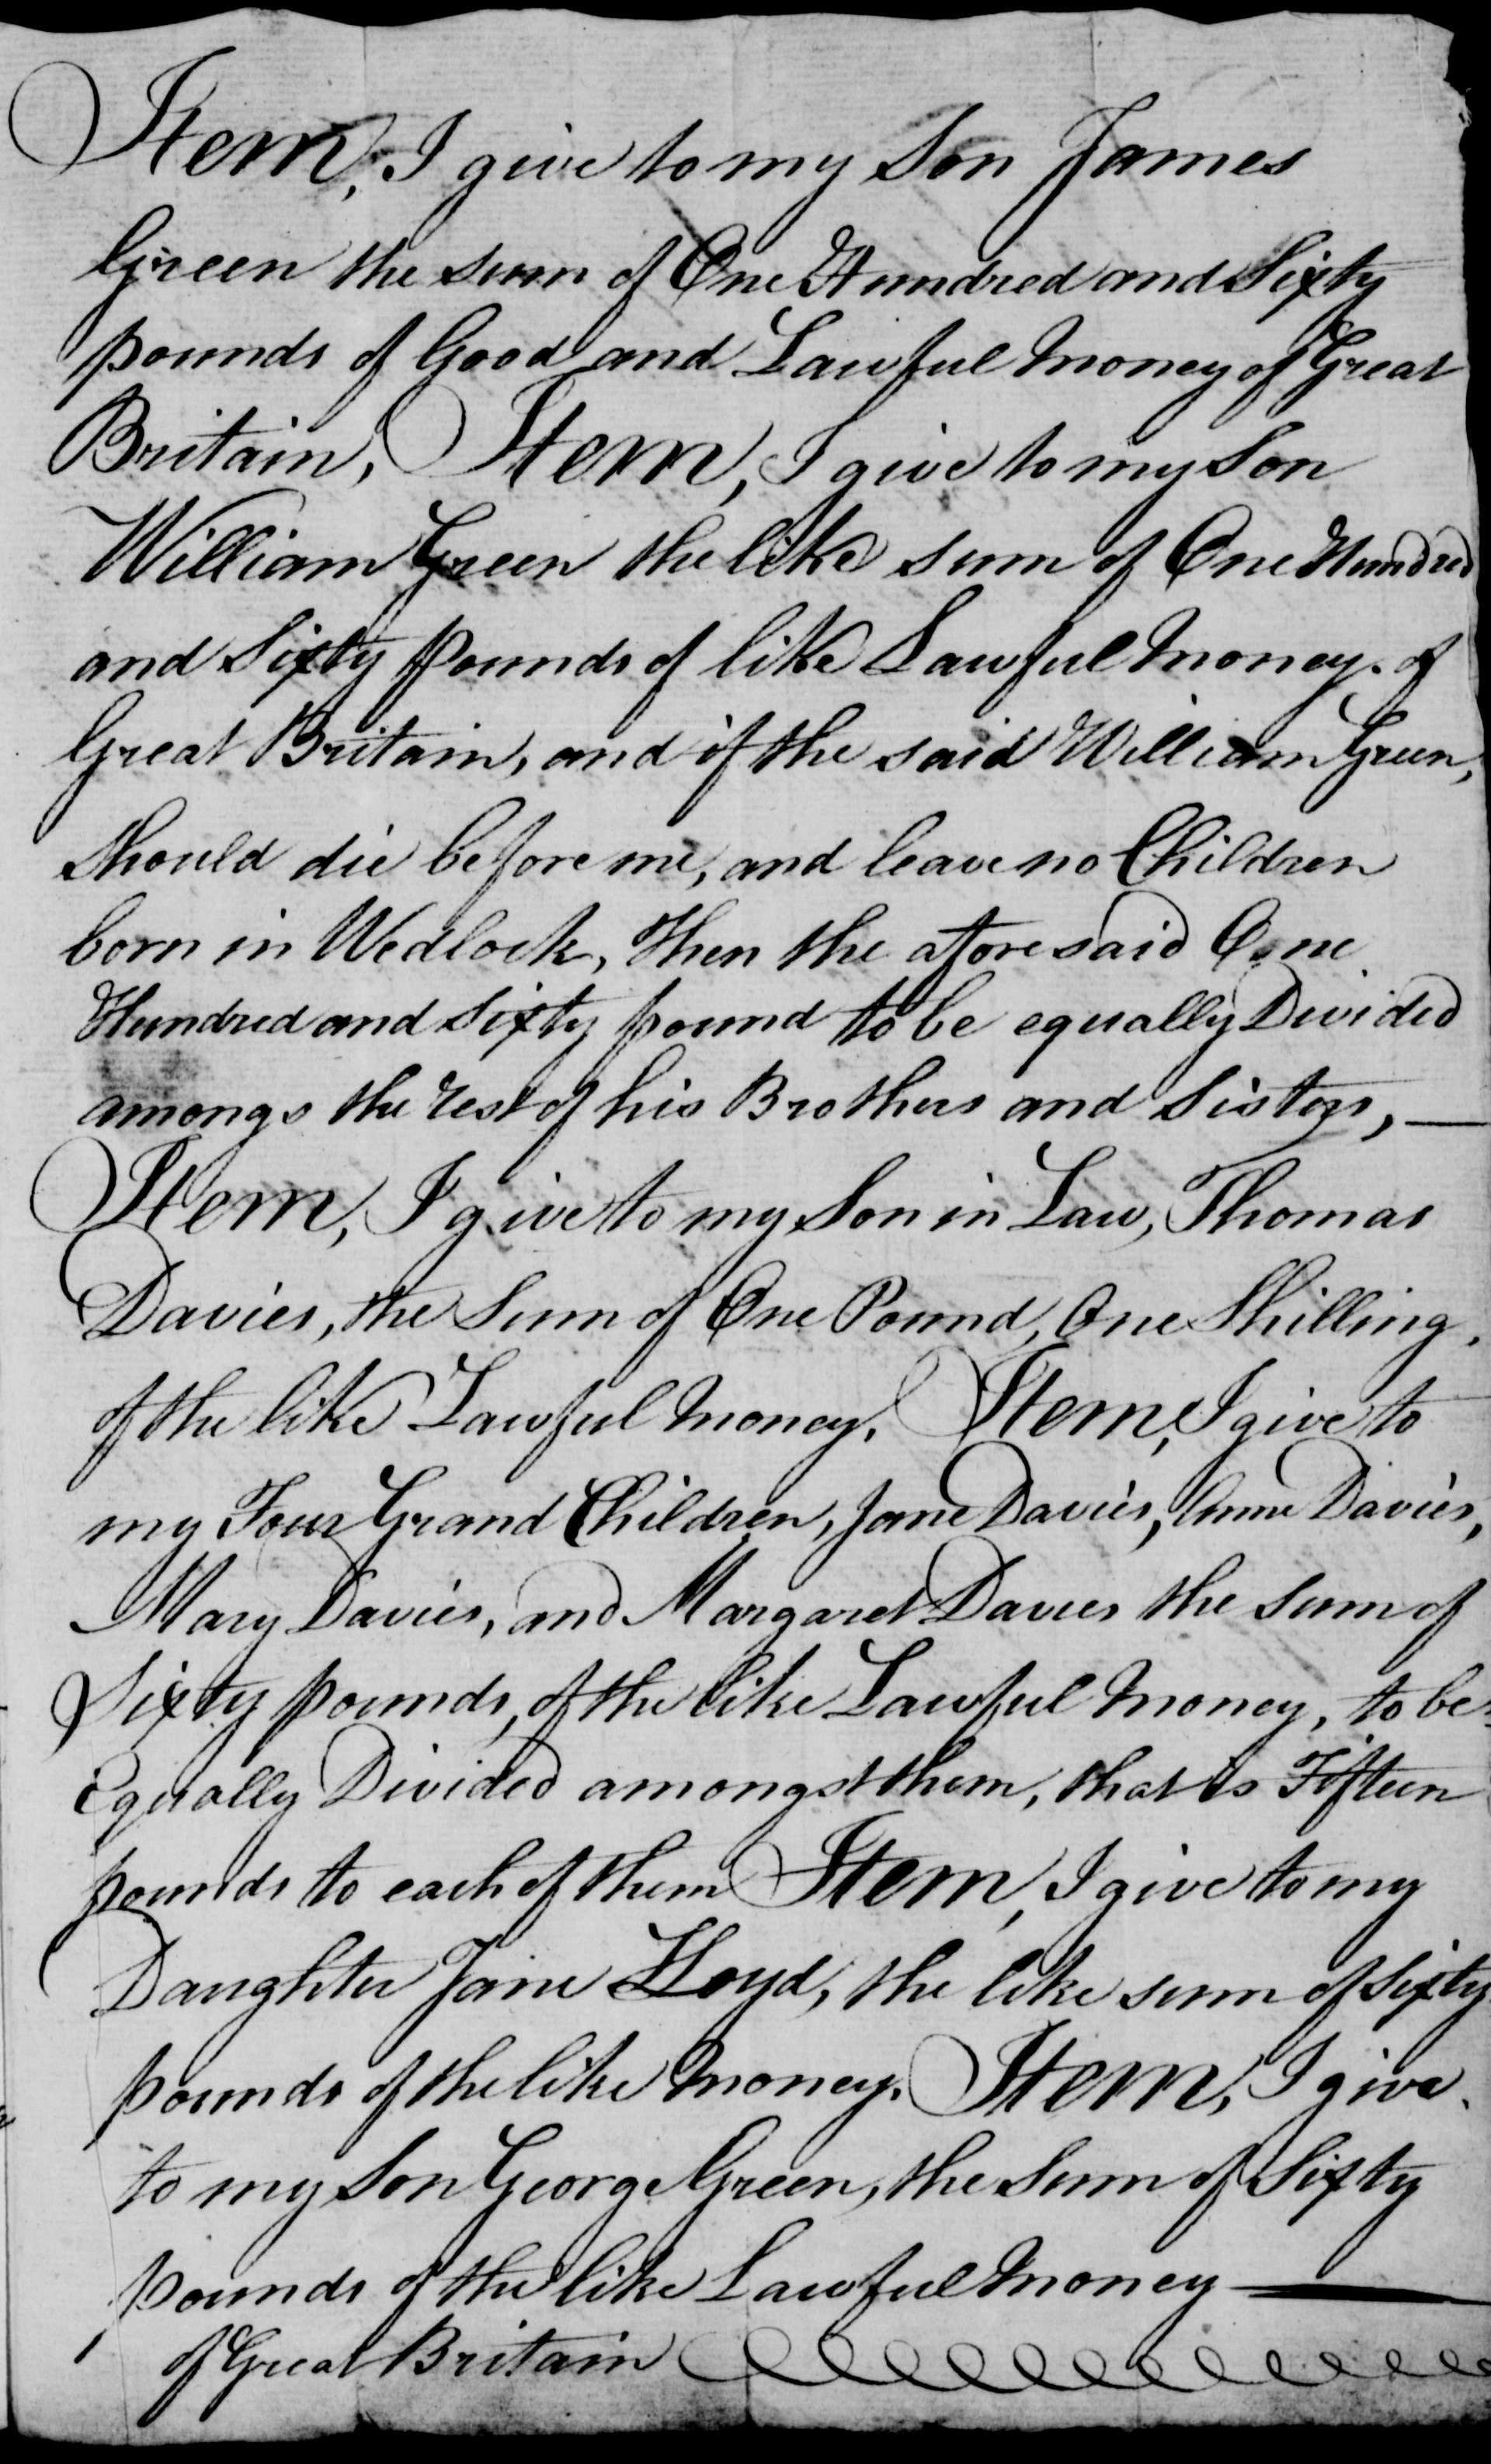 Item, I give to my Son James
Green the sum of One Hundred and Sixty
pounds of Good and Lawful Money of Great
Britain, Item, I give to my Son
William Green the like sum of One Hundred
and Sixty pounds of like Lawful Money. of
Great Britain, and if the said William Green,
should die before me, and leave no Children
born in Wedlock, then the aforesaid One
Hundred and Sixty pound to be equally Divided
amongs the rest of his Brothers and Sisters, —
Item, I give to my Son in Law, Thomas
Davies, the Sum of One Pound, One Shilling,
of the like Lawful Money, Item, I give to
my Four Grand Children, Jane Davies, Anne Davies,
Mary Davies, and Margaret Davies the Sum of
Sixty pounds, of the like Lawful Money, to be
Equally Divided amongst them, that is Fifteen
pounds to each of them Item, I give to my
Daughter Jane Lloyd, the like sum of Sixty
pounds of the like Money. Item, I give
to my Son George Green, the Sum of Sixty
pounds of the like Lawful Money —
of Great Britain